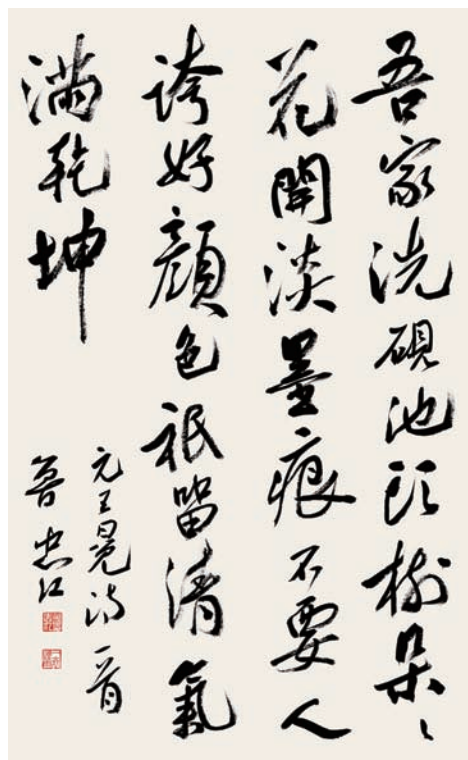 吾家洗硯池頭樹朵〻
花開淡墨痕不要人
誇好顏色祇留清氣
滿乾坤
元王冕詩一首
魯忠江